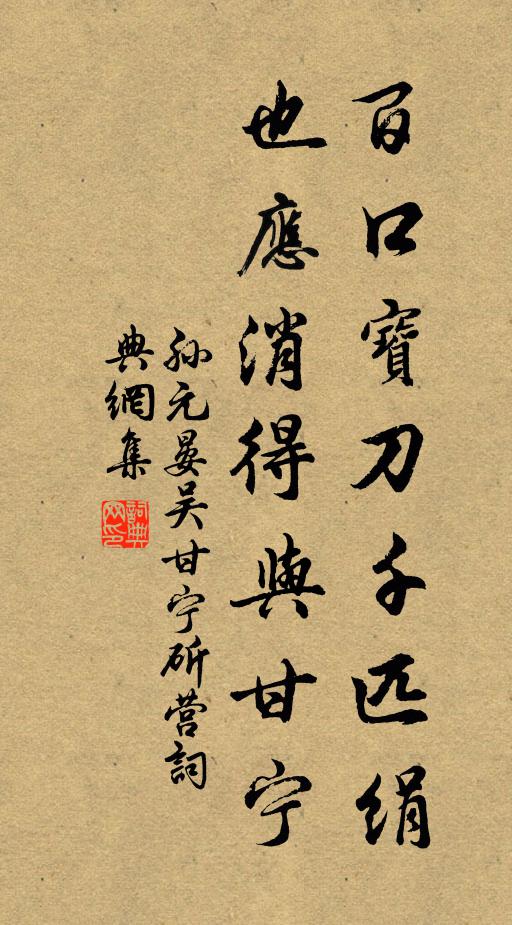 百口寶刀千匹絹
也應消得與甘宁
孙元晏吴甘宁斫营詞
典網集
詞典
网印